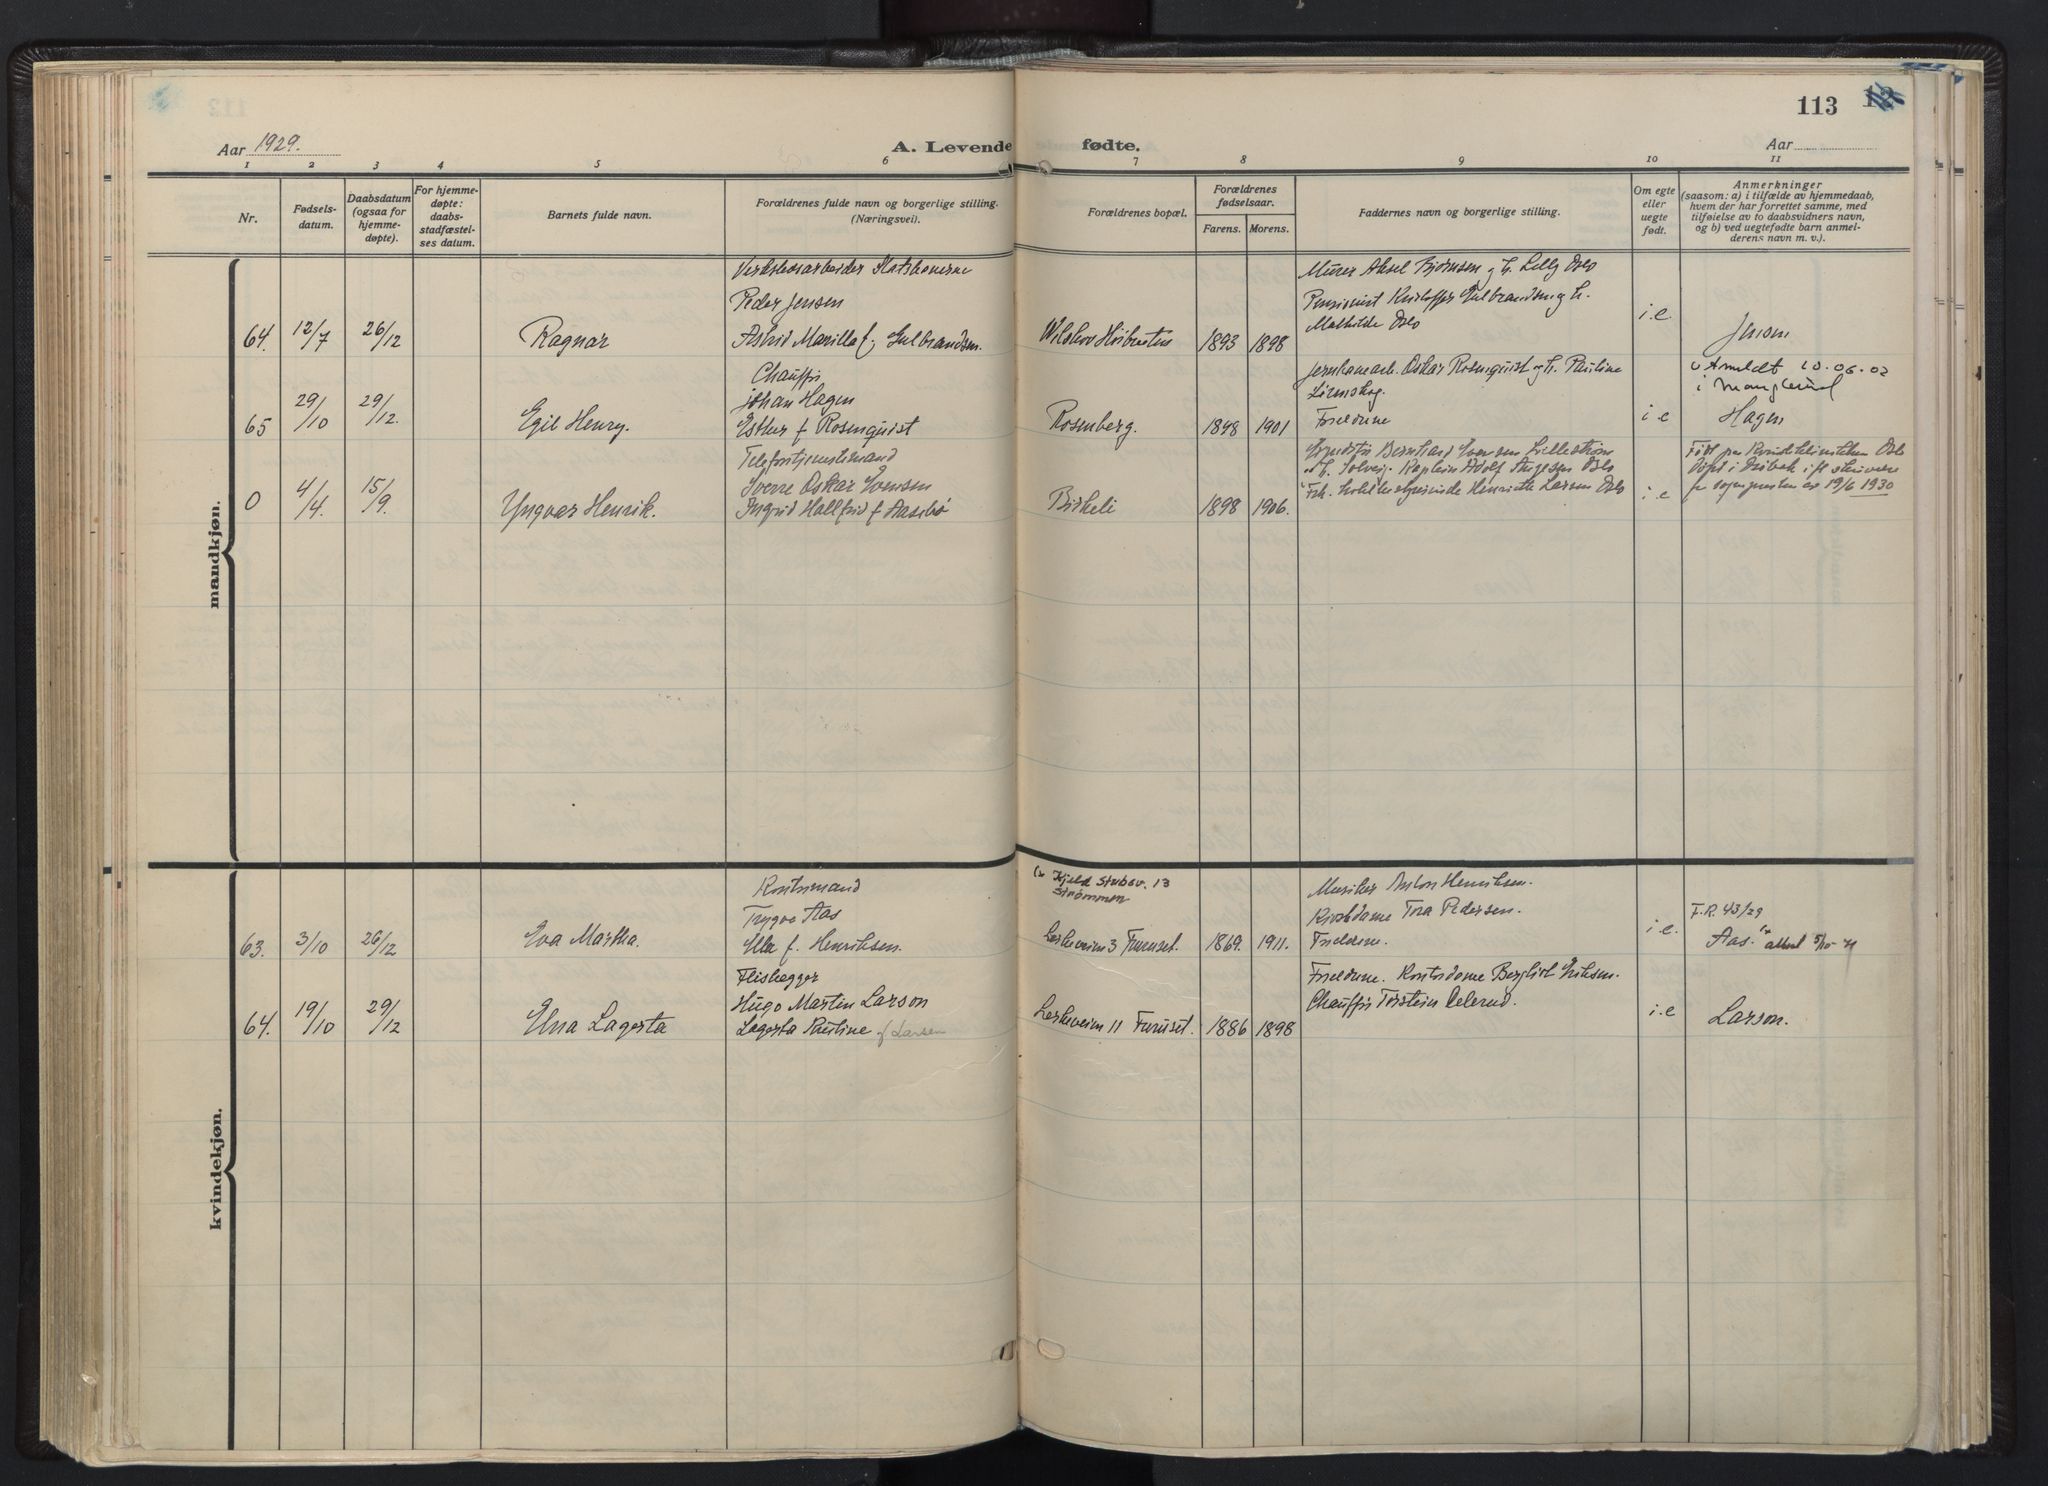 113
Aar 1929.
A. Levende fødte.
Aar
1 2 3 4 5 6 7 8 9 10 11
Nr.
Fødsels-
datum.
Daabsdatum
(ogsaa for
hjemme-
døpte).
For hjemme-
døpte:
daabs-
stadfæstel-
ses datum.
Barnets fulde navn.
Forældrenes fulde navn og borgerlige stilling.
(Næringsvei).
Forældrenes bopæl.
Forældrenes
fødselsaar.
Farens. Morens.
Faddernes navn og borgerlige stilling.
Om egte
eller
uegte
født.
Anmerkninger
(saasom: a) i tilfælde av hjemmedaab,
hvem der har forrettet samme, med
tilføielse av to daabsvidners navn,
og b) ved uegtefødte barn anmel-
derens navn m. v.).
mandkjøn.
64. 12/7 26/12 Ragnar
Verkstedsarbeider Statsbanerne
Peder Jensen
Astrid Marilla f. Gulbrandsen.
1893 1898
Murer Aksel Bjørnsen og h. Lilly Oslo
Pensionist Kristoffer Gulbrandsen og h.
Mathilde Oslo
i.e.
Jensen
65 29/10 29/12. Egil Henry.
Chauffør
Johan Hagen
Esther f Rosenquist
Rosenberg. 1898 1901
Jernbanearb. Oskar Rosenquist og h. Pauline
Lørenskog.
Forældrene
i e
Utmeldt 10.06.02
i Manglerud
Hagen
0 4/4. 15/9. Yngvar Henrik.
Telefontjenestemand
Sverre Oskar Evensen
Ingrid Hallfrid f Aasebø
Birkeli 1898 1906.
Bernhard Evensen Lillestrøm
og h. Solveig. Kaptein Adolf Oslo
Frk. Henriette Larsen Oslo
i e
Født paa Kvindeklinikken Oslo
Døpt i Drøbak
19/6 1930
kvindekjøn.
63. 3/10 26/12 Eva Martha.
Kontormand
Trygve Aas
Ella f. Henriksen.
(x Kjeld Stubsv. 13
Strømmen
3 Furuset. 1869. 1911.
Musiker Anton Henriksen.
Kioskdame Tora Pedersen.
Forældrene.
i.e.
F.R. 43/29
Aas.
64. 19/10 29/12 Elna Lagerta
Flislegger
Hugo Martin Larson
Lagerta Pauline f Larsen
11 Furuset. 1886 1898
Forældrene. Kontordame Bergliot Eriksen.
Chauffør Torstein
i.e
Larson.